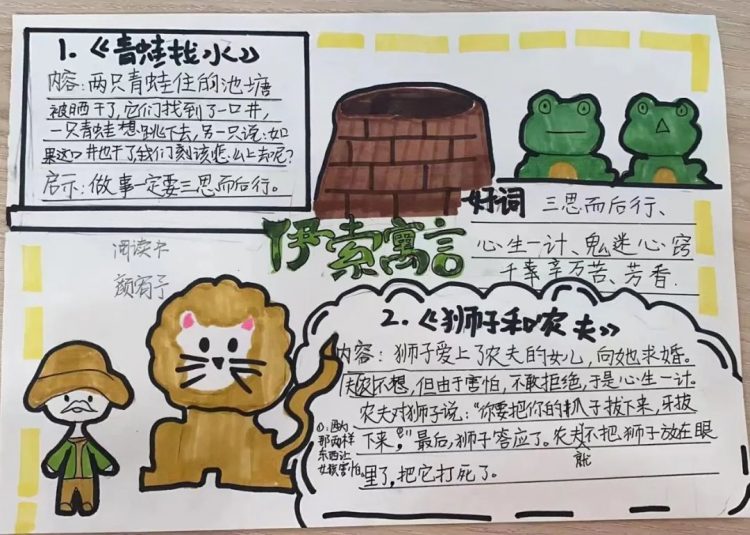 1.《青蛙找水》
内容:两只青蛙住的池塘
被晒干了,它们找到了一口井,
一只青蛙想跳下去,另一只说:如
果这口井也干了,我们该怎么上去呢?
启示:做事一定要三思而后行。
阅读卡
颜宥予
伊索寓言
好词 三思而后行、
心生一计、鬼迷心窍
千辛万苦、芳香.
2.《狮子和农夫》
内容:狮子爱上了农夫的女儿,向她求婚。
农夫不想,但由于害怕,不敢拒绝,于是心生一计。
农夫对狮子说:“你要把你的爪子拔下来,牙拔
下来,”最后,狮子答应了。农夫不把狮子放在眼
就
里了,把它打死了。
因为
那两样
东西让
女孩害怕